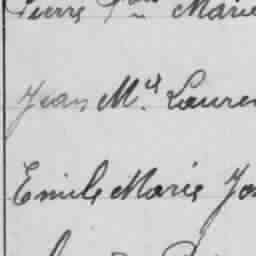 Pierre Marie
Jean M.el Lauren
Emile Marie Jos